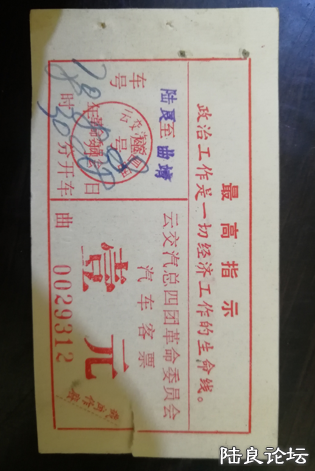 最高指示
政治工作是一切经济工作的生命线。
云交汽总四团革命委员会
汽车客票
陆良至曲靖
壹元
车号
日
时30分开车
曲 0029312
陆良论坛